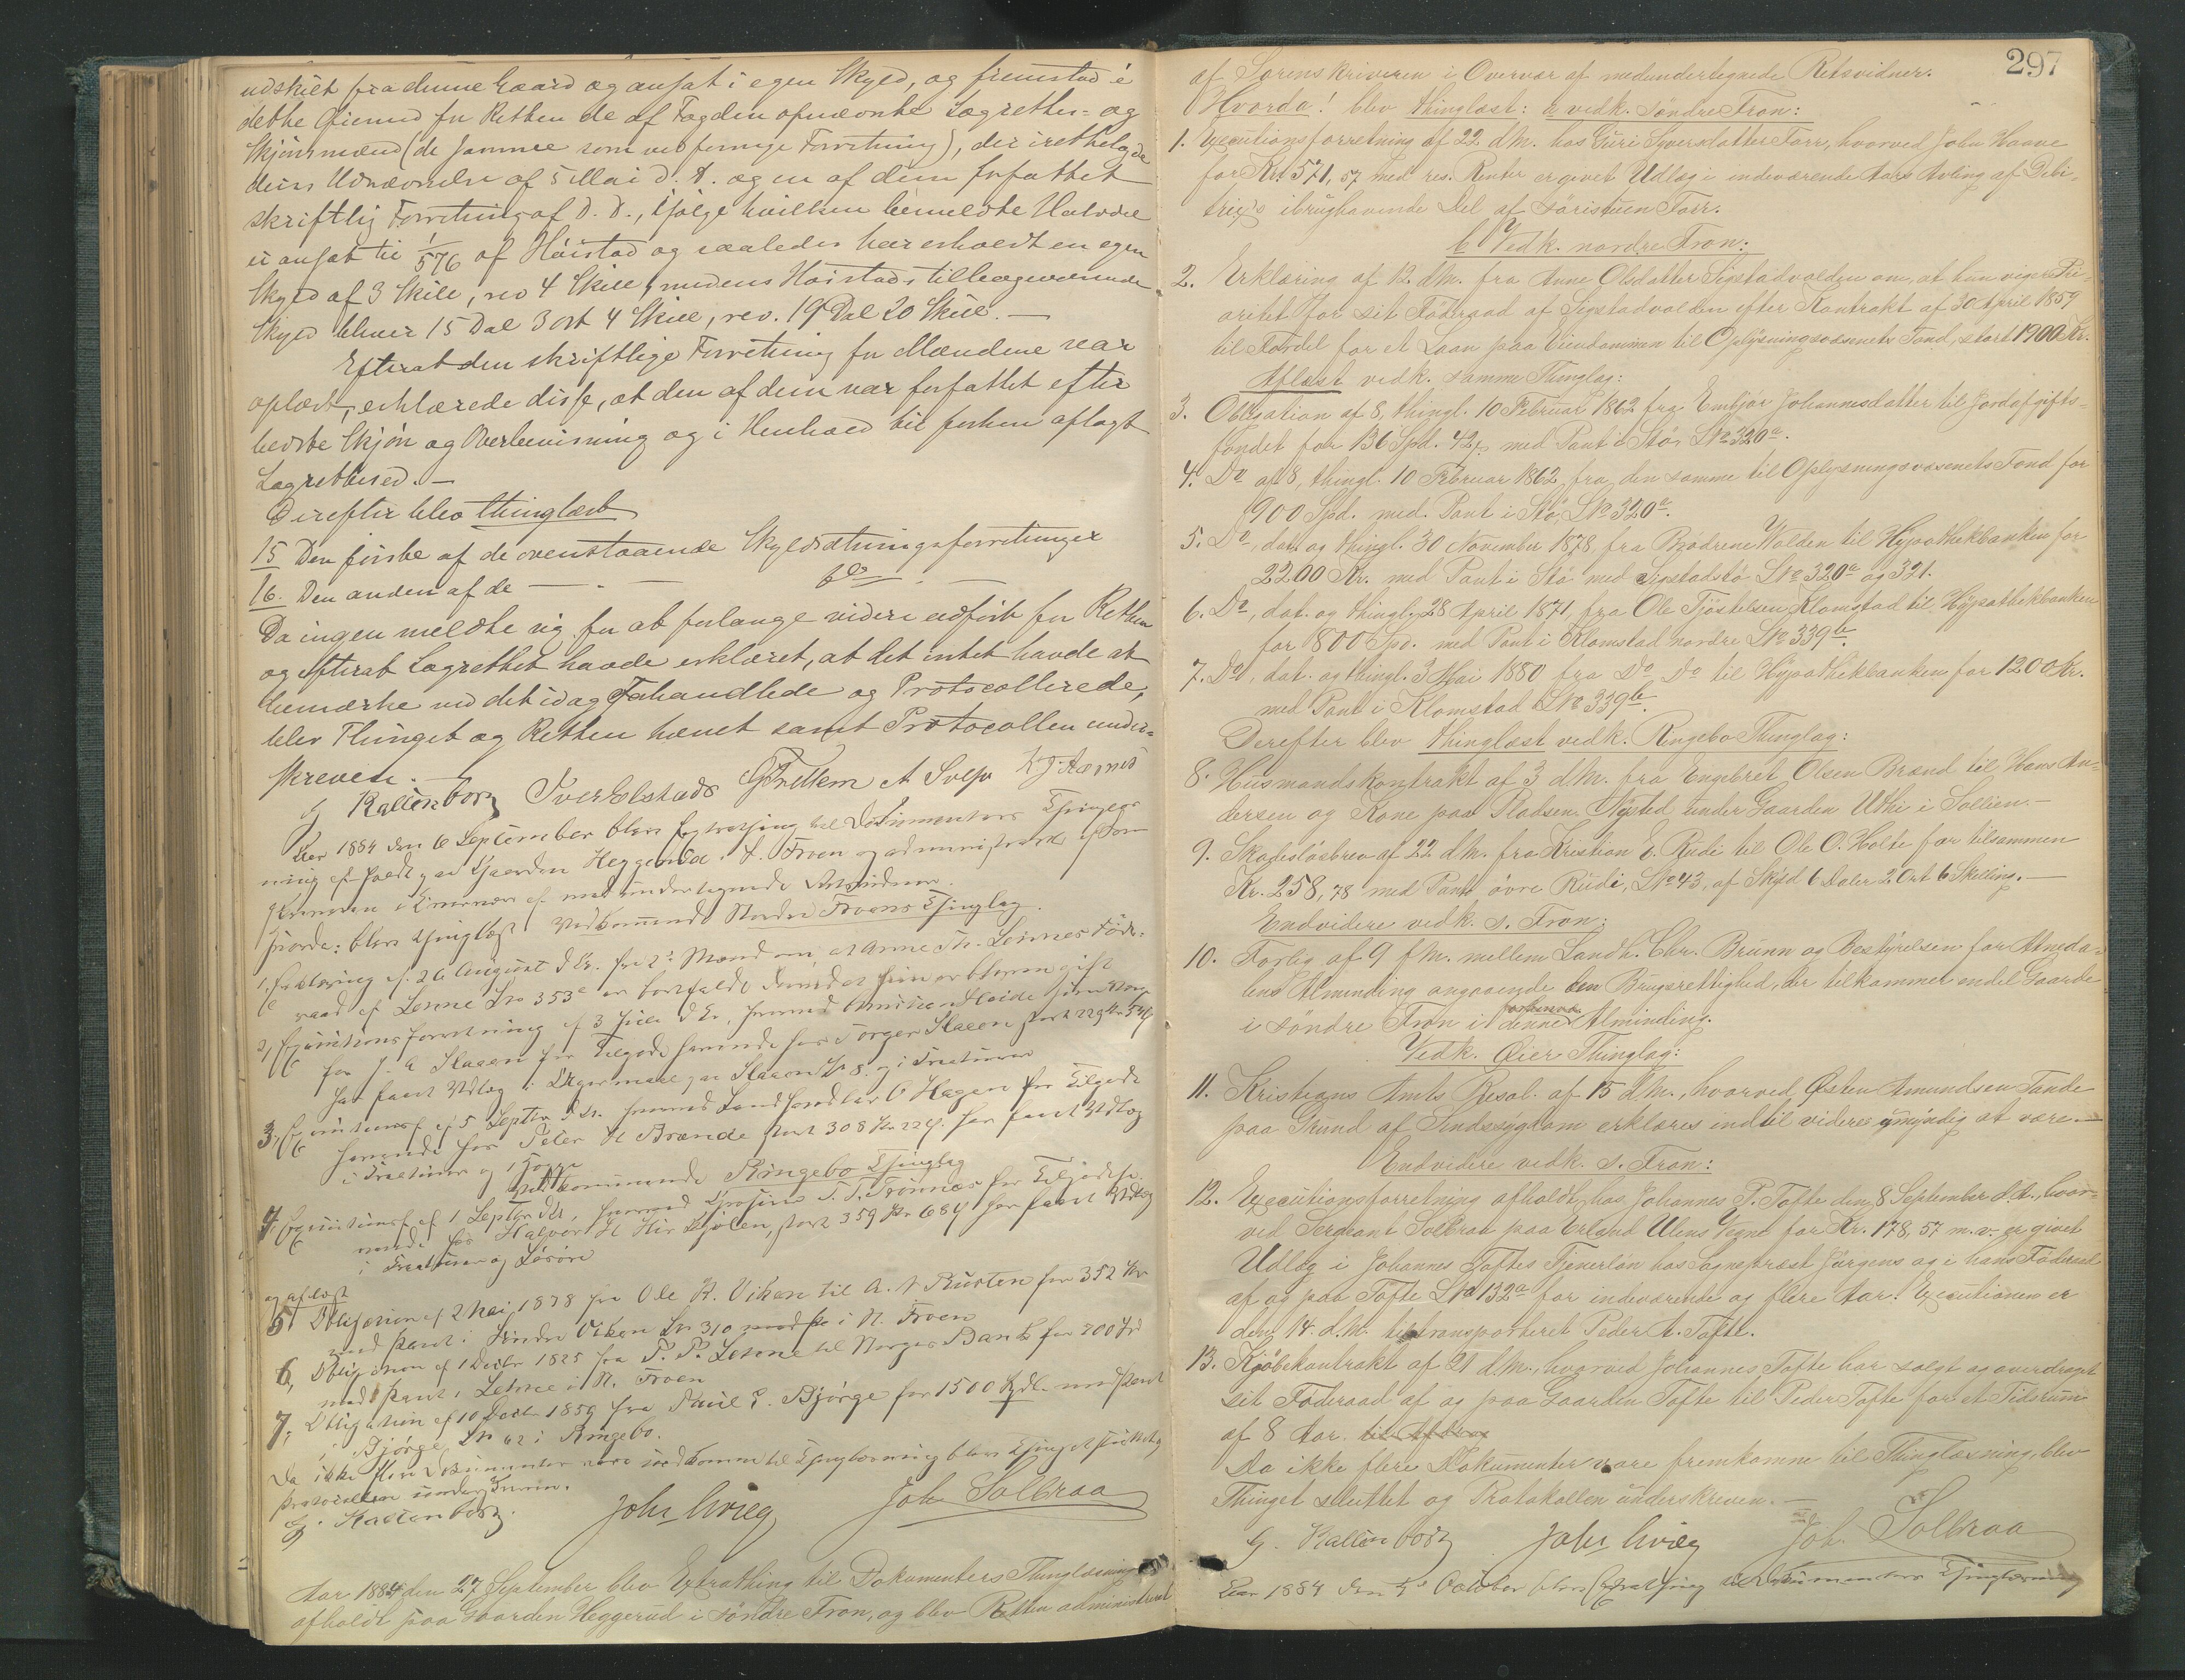 udskilt fra denne Gaard og ansat i egen Skyld, og fremstod i
dette Øiemed for Retten de af Fogden opnævnte Lagrettes- og
Skjønsmænd (de samme som ved forrige Forretning), der irettelagde
deres Udnævnelse af 5 Mai d. A. og en af dem forfattet
skriftlig Forretning af D. D., ifølge hvilken bemeldte
er ansat til 1/576 af Høistad og saaledes har erholdt en egen
Skyld af 3 Skill, rev 4 Skill, medens Høistads tilbageværende
Skyld bliver 15 Dal 3 ort 4 Skill, rev. 19 Dal 20 Skill. —
Efterat den skriftlige Forretning for Mændene var
oplæst, erklærede disse, at den af dem var forfattet efter
bedste Skjøn og Overbevisning og i Henhold til forhen aflagt
Lagretteed. —
Derefter blev thinglæst
15 Den første af de ovenstaaende Skyldsætningsforretninger
16. Den anden af de — . — do — . —
Da ingen meldte sig for at forlange videre udført for Retten
og efterat Lagrettet havde erklæret, at det intet havde at
bemærke ved det idag Fahandlede og Protocollerede,
blev Thinget og Retten hævet samt Protocollen under-
skreven. —
G Kallenborg Iver Elstads G Frettem A Sveen
Aar 1884 den 6 September blev Extrathing til Dokumenters Thinglæs-
ning afholdt paa Gaarden Heggerud i S. Fron og administreret af Soren-
skriveren i Overvær af medundertegnede Retsvidner.
Hvorda: blev thinglæst Vedkommende Nordre Frons Thinglag.
1. Erklæring af 26 August d Ar. fra 2de Mænd om, at Anne Th. Lonnes Føde-
raad af Lonne Lno 353c er bortfaldt derved at hun er bleven gift
2, Executionsforretning af 3 Juli d Ar, hvorved
for J. A Staaen for Tilgodehavende hos Torger Staaen stort 229 Kr
har faaet Udlæg i
3, Executionsf. af 5 Septbr d Ar. hvorved Landhandler O Hagen for Tilgode-
havende hos Peter H Brænde stort 308 Kr 22 Ø. har faaet Udlæg
i Kreaturer og
Vedkommende Ringebo Thinglag
4 Executionsf. af 1 Septbr d Ar, hvorved T. T. Tronnæs for Tilgodeha-
vende hos Halvor H Kjølen, stort 359 Kr 68 Ø har faaet Udlæg
i Kreaturer og Løsøre
og aflæst
5, Obligation af 2 Mai 1878 fra Ole R. Viken til A. A. Rusten for 352 Kr
med Pant i Søndre Viken Lno 310 i N. Fron
6, Obligation af 1 Decbr 1825 fra P. P. Lonne til Norges Bank for 700 Spd
med Pant i Lonne i N. Fron
7, Obligation af 10 Decbr 1859 fra Paul E. Bjørge for 1500 Spdl. med Pant
i Bjørge Lno 62 i Ringebo.
Da ikke flere Dokumenter vare indkomne til Thinglæsning blev Thinget sluttet og
Protocollen underskreven.
G. Kallenborg. John Hvieg Joh Solbraa
Aar 1884 den 27 September blev Extrathing til Dokumenters Thinglæsning
afholdt paa Gaarden Heggerud i søndre Fron, og blev Retten administreret
297
af Sorenskriveren i Overvær af medundertegnede Retsvidner.
Hvorda! blev thinglæst: a vedk. søndre Fron:
1. Executionsforretning af 22 d.M. hos Guri Syversdatter Forr, hvorved John Haave
for Kr. 571,57 med res. Renter er givet Udlæg i indeværende Aars Avling af Debi-
trix's ibrughavende Del af søristuen Forr.
b Vedk. nordre Fron:
2. Erklæring af 12 d.M. fra Anne Olsdatter Sigstadvolden om, at hun viger Pri-
oritet for sit Føderaad af Sigstadvolden efter Kontrakt af 30 April 1859
til Fordel for et Laan paa Eiendommen til Oplysningsvæsenets Fond, stort 1900 Kr.
Aflæst vedk. samme Thinglag:
3. Obligation af 8, thingl. 10 Februar 1862 fra Embjør Johannesdatter til Jordafgifts-
fondet for 136 Spd. 42 s med Pant i Stø, Lno 320a.
4. Do af 8, thingl. 10 Februar 1862 fra den samme til Oplysningsvæsenets Fond for
900 Spd. med Pant i Stø, Lno 320a.
5. Do, dat. og thingl. 30 November 1878 fra Brødrene Volden til Hypothekbanken for
2200 Kr. med Pant i Stø med Sigstadstø Lno 320a og 321.
6. Do, dat. og thingl. 28 April 1871 fra Ole Tjøstelsen Klomstad til Hypothekbanken
for 800 Spd. med Pant i Klomstad nordre Lno 339b.
7. Do, dat. og thingl. 3 Mai 1880 fra Do Do til Hypothekbanken for 1200 Kr.
med Pant i Klomstad Lno 339b.
Derefter blev thinglæst vedk. Ringebo Thinglag:
8. Husmandskontrakt af 3 d.M. fra Engebret Olsen Brænd til Hans An-
dersen og Kone paa Pladsen Nysted under Gaarden Uthi i Sollien. —
9. Skadesløsbrev af 22 d.M. fra Kristian E. Rudi til Ole O. Holte for tilsammen
Kr. 258,78 med Pant øvre Rudi, Lno 43, af Skyld 6 Daler 2 Ort 6 Skilling. —
Endvidere vedk. s. Fron:
10. Forlig af 9 f.M. mellem Landh. Chr. Brunn og Bestyrelsen for Atneda-
lens Alminding angaaende den Brugsrettighed, der tilkommer endel Gaarde
i søndre Fron i denne Alminding.
Vedk. Øier Thinglag:
11. Kristians Amts Resol. af 15 d.M., hvorved Østen Amundsen Tande
paa Grund af Sindssygdom erklæres indtil videre umyndig at være. —
Endvidere vedk. s. Fron:
12. Executionsforretning afholdt hos Johannes P. Tofte den 8 September d.A., hvor-
ved Sergeant Solbraa paa Erland Ulens Vegne for Kr. 178,57 m.v. er givet
Udlæg i Johannes Toftes Tjenerløn hos Sogneprest Jørgens og i hans Føderaad
af og paa Tofte Lno 132a for indeværende og flere Aar. Executionen er
den 14. d.M. tiltransporteret Peder A. Tofte.
13. Kjøbekontrakt af 21 d.M., hvorved Johannes Tofte har solgt og overdraget
sit Føderaad af og paa Gaarden Tofte til Peder Tofte for et Tidsrum
af 8 Aar.
Da ikke flere Dokumenter vare fremkomne til Thinglæsning, blev
Thinget sluttet og Protokollen underskreven. —
G. Kallenborg John Hvieg Joh. Solbraa
Aar 1884 den October blev Extrathing til Dokumenters Thinglæsning